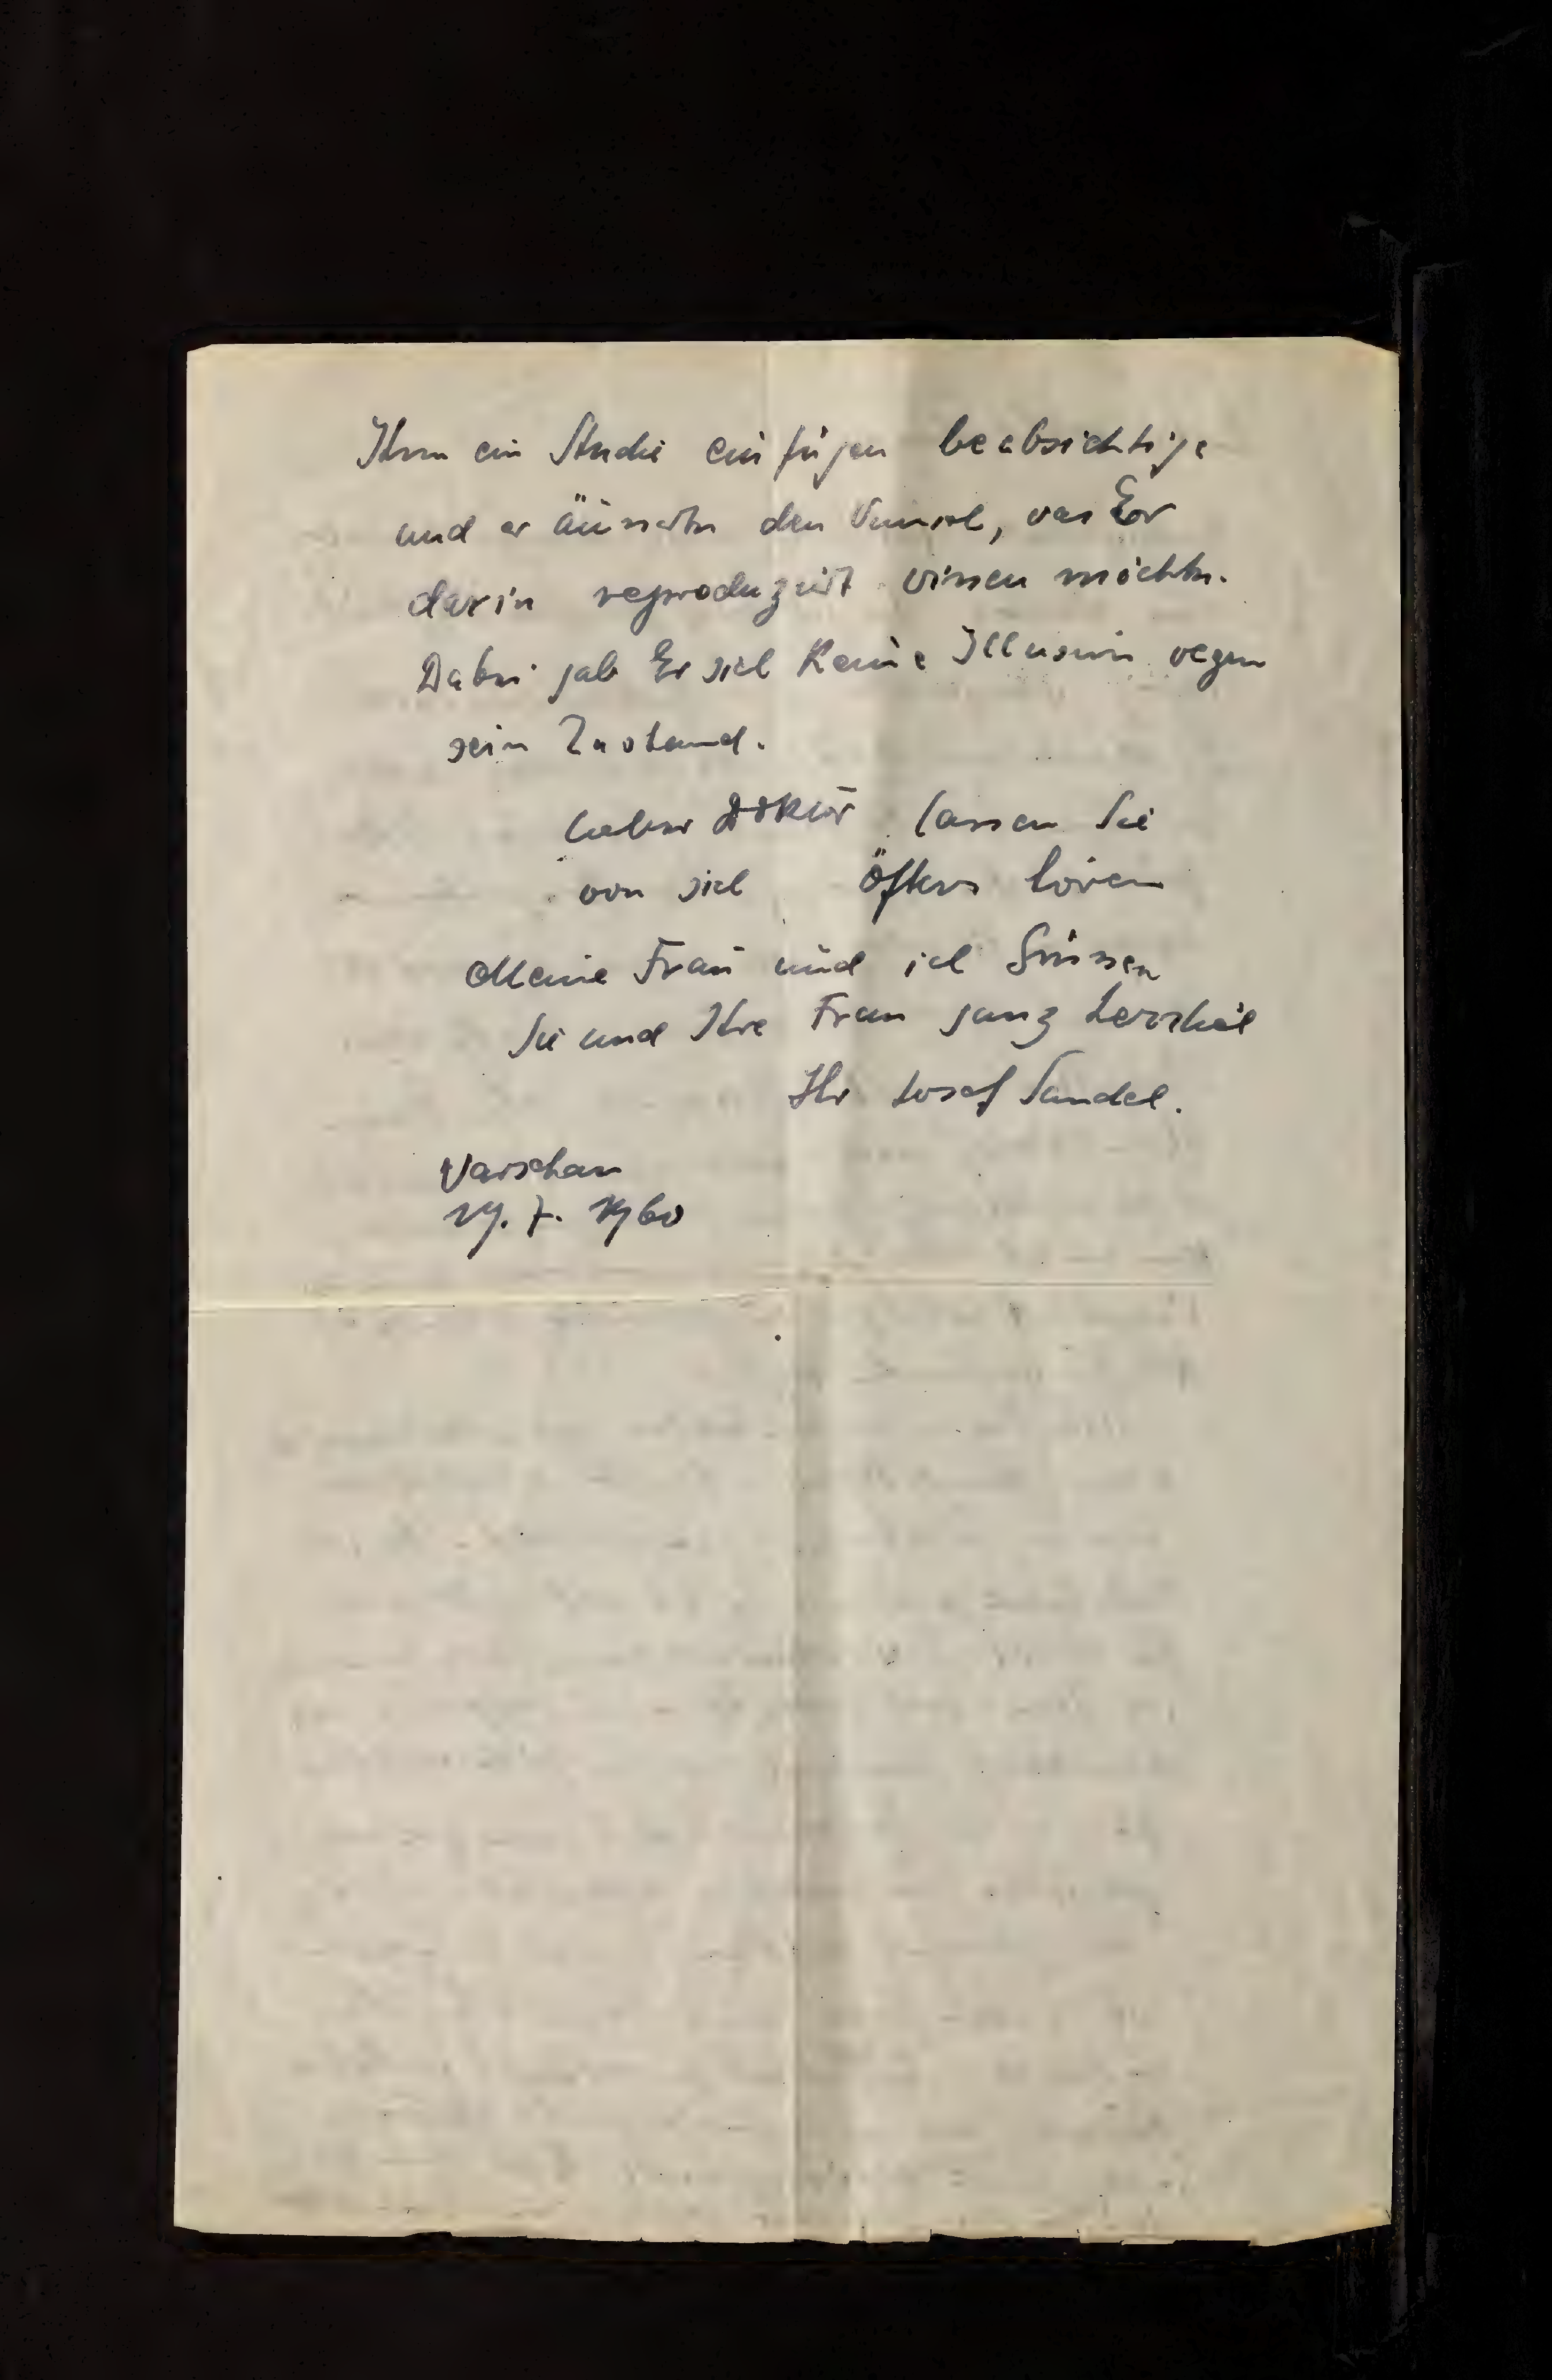 Ihm ein Studie einfügen beabsichtige
und er äusserte den Wunsch, was Er
darin reproduziert wissen möchte.
Dabei gab Er sich keine Illusion wegen
sein Zustand.
Lieber Doktor lassen Sie
von sich öfters hören
Meine Frau und ich Grüssen
Sie und Ihre Frau ganz herzlich
Ihr Josef Sandel.
Warschau
19. 7. 1960